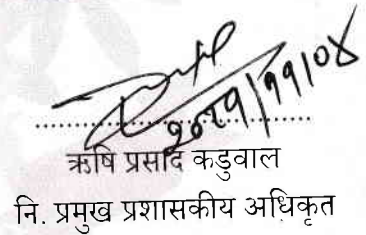 २०८१/११/०४
ऋषि प्रसाद कडुवाल
नि. प्रमुख प्रशासकीय अधिकृत